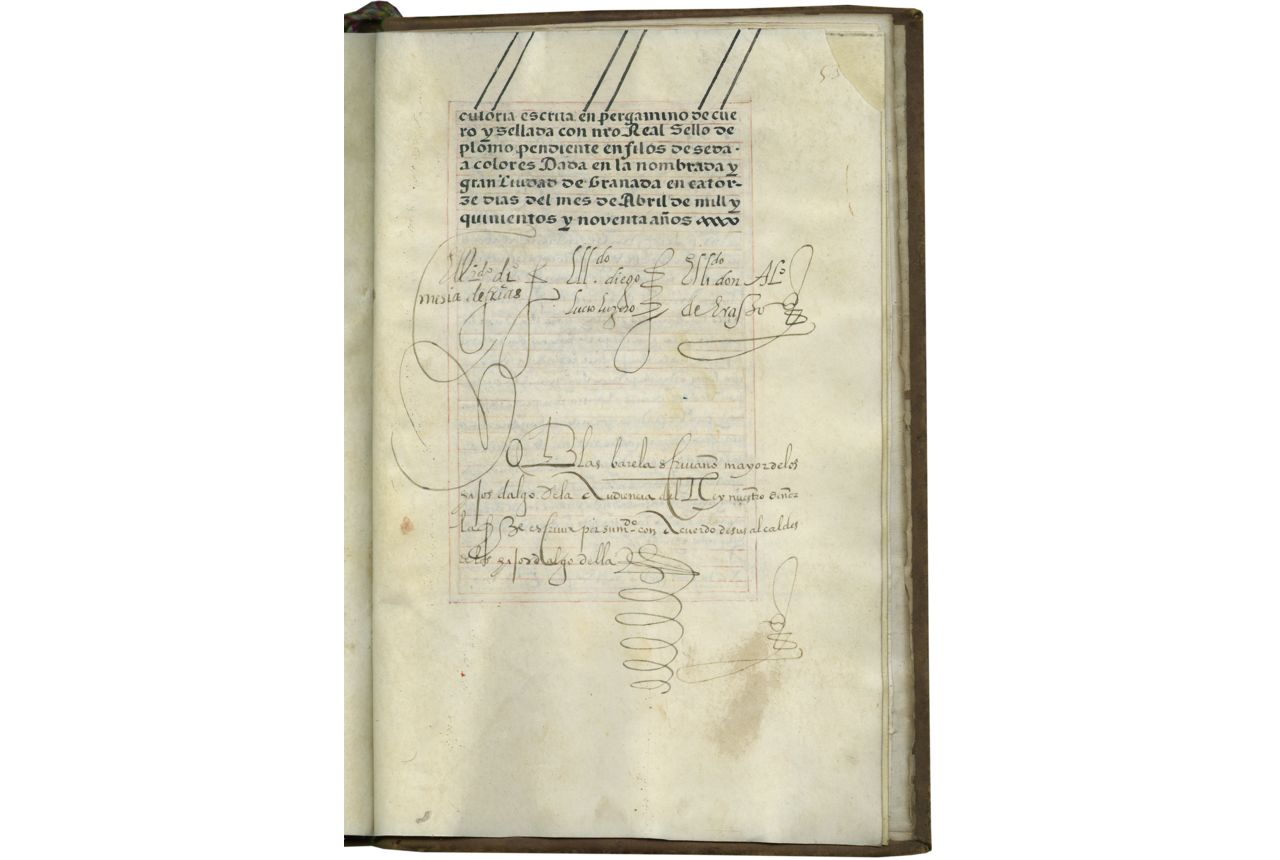 cutoria escrita en pergamino de cue
ro y sellada con nro Real Sello de
plomo pendiente en filos de seda.
a colores Dada en la nombrada y
gran Ciudad de Granada en cator-
ze dias del mes de Abril de mill y
quinientos y noventa años
El l.do di.o
El l.do diego
El l.do don Al.o
de frias
Lucio Luzero
de Erasso
Blas barela escrivano mayor de los
hijos dalgo de la Audiencia del Rey nuestro señor
la fize escrivir por su m.do con Acuerdo de sus alcaldes
de los hijos dalgo della